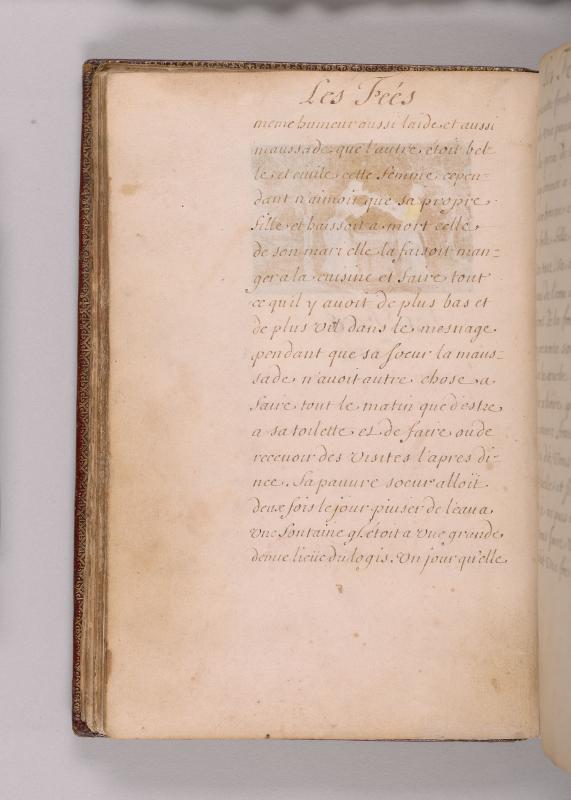 Les Feés
meme humeur aussi laide et aussi
maussade que l'autre etoit bel-
le et civile cette femme cepen-
dant n'aimoit que sa propre
fille et haissoit a mort celle
de son mari elle la faisoit man-
ger a la cuisine et faire tout
ce quil y avoit de plus bas et
de plus vil dans le mesnage
pendant que sa soeur la maus-
sade n'avoit autre chose a
faire tout le matin que d'estre
a sa toilette et de faire ou de
recevoir des visites l'apres di-
nee. Sa pauvre soeur alloit
deux fois le jour puiser de l'eau a
une fontaine q. étoit a une grande
demie lieüe du logis. Un jour qu'elle